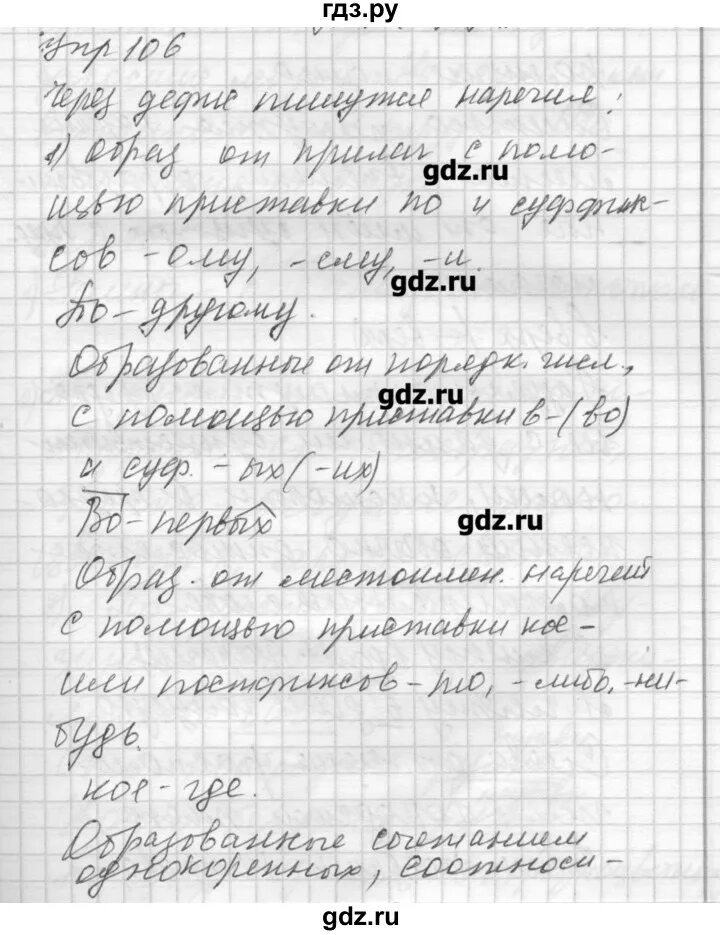 гдз.ру
Упр 106
Через дефис пишутся наречия:
1) Образ от прилаг с помо-
gdz.ru
щью приставки по и суффик-
сов -ому, -ему, -и.
gdz.ru
По-другому.
Образованные от порядк. числ.,
gdz.ru
с помощью приставки в-(во)
и суф. -ых (-их)
Во-первых
gdz.ru
Образ. от местоимен. наречий
с помощью приставки кое-
или постфиксов -то, -либо, -ни-
будь.
кое-где.
Образованные сочетанием
однокоренных, соотноси-
gdz.ru